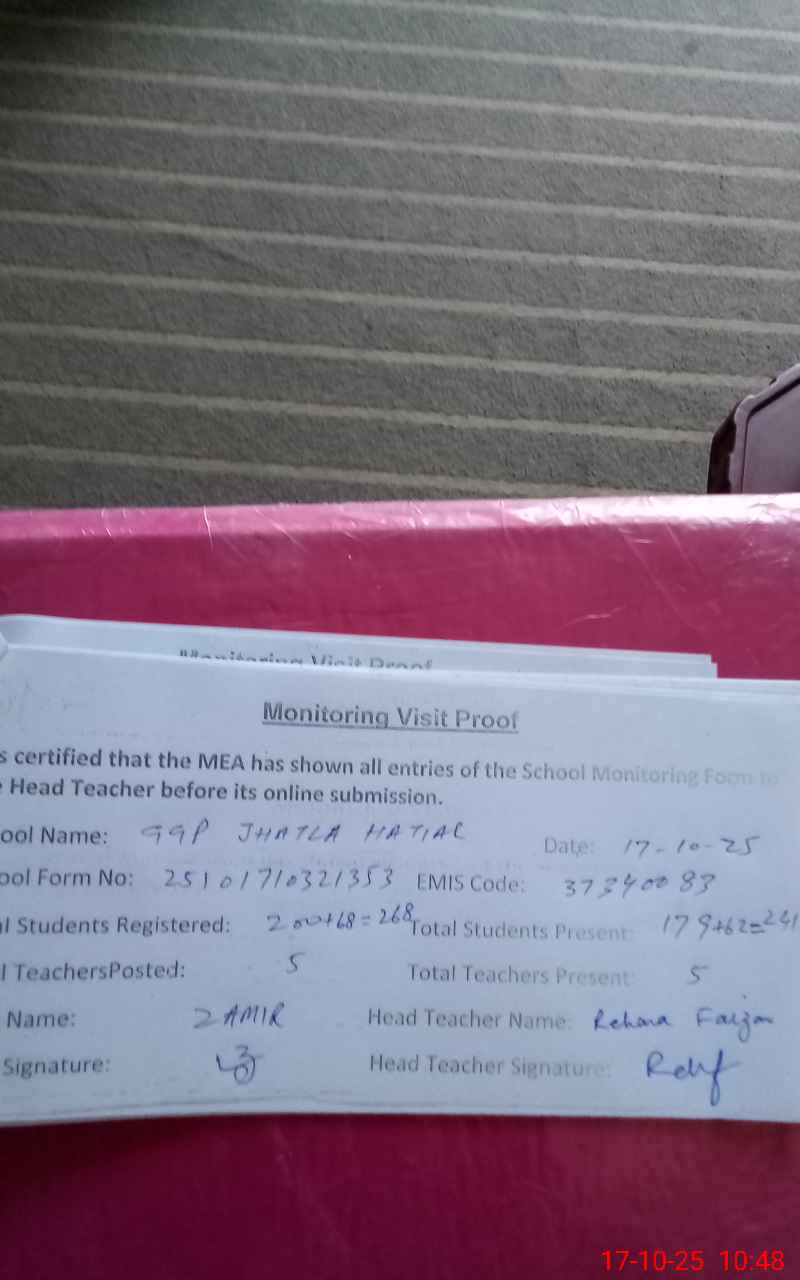 Monitoring Visit Proof
Monitoring Visit Proof
s certified that the MEA has shown all entries of the School Monitoring Form to
e Head Teacher before its online submission.
ool Name: GGP JHATLA HATIAL Date: 17-10-25
ool Form No: 25101710321353 EMIS Code: 37340083
al Students Registered: 200+68=268 Total Students Present: 179+62=241
l TeachersPosted: 5 Total Teachers Present: 5
Name: ZAMIR Head Teacher Name: Rehana Faizan
Signature: Head Teacher Signature:
17-10-25 10:48